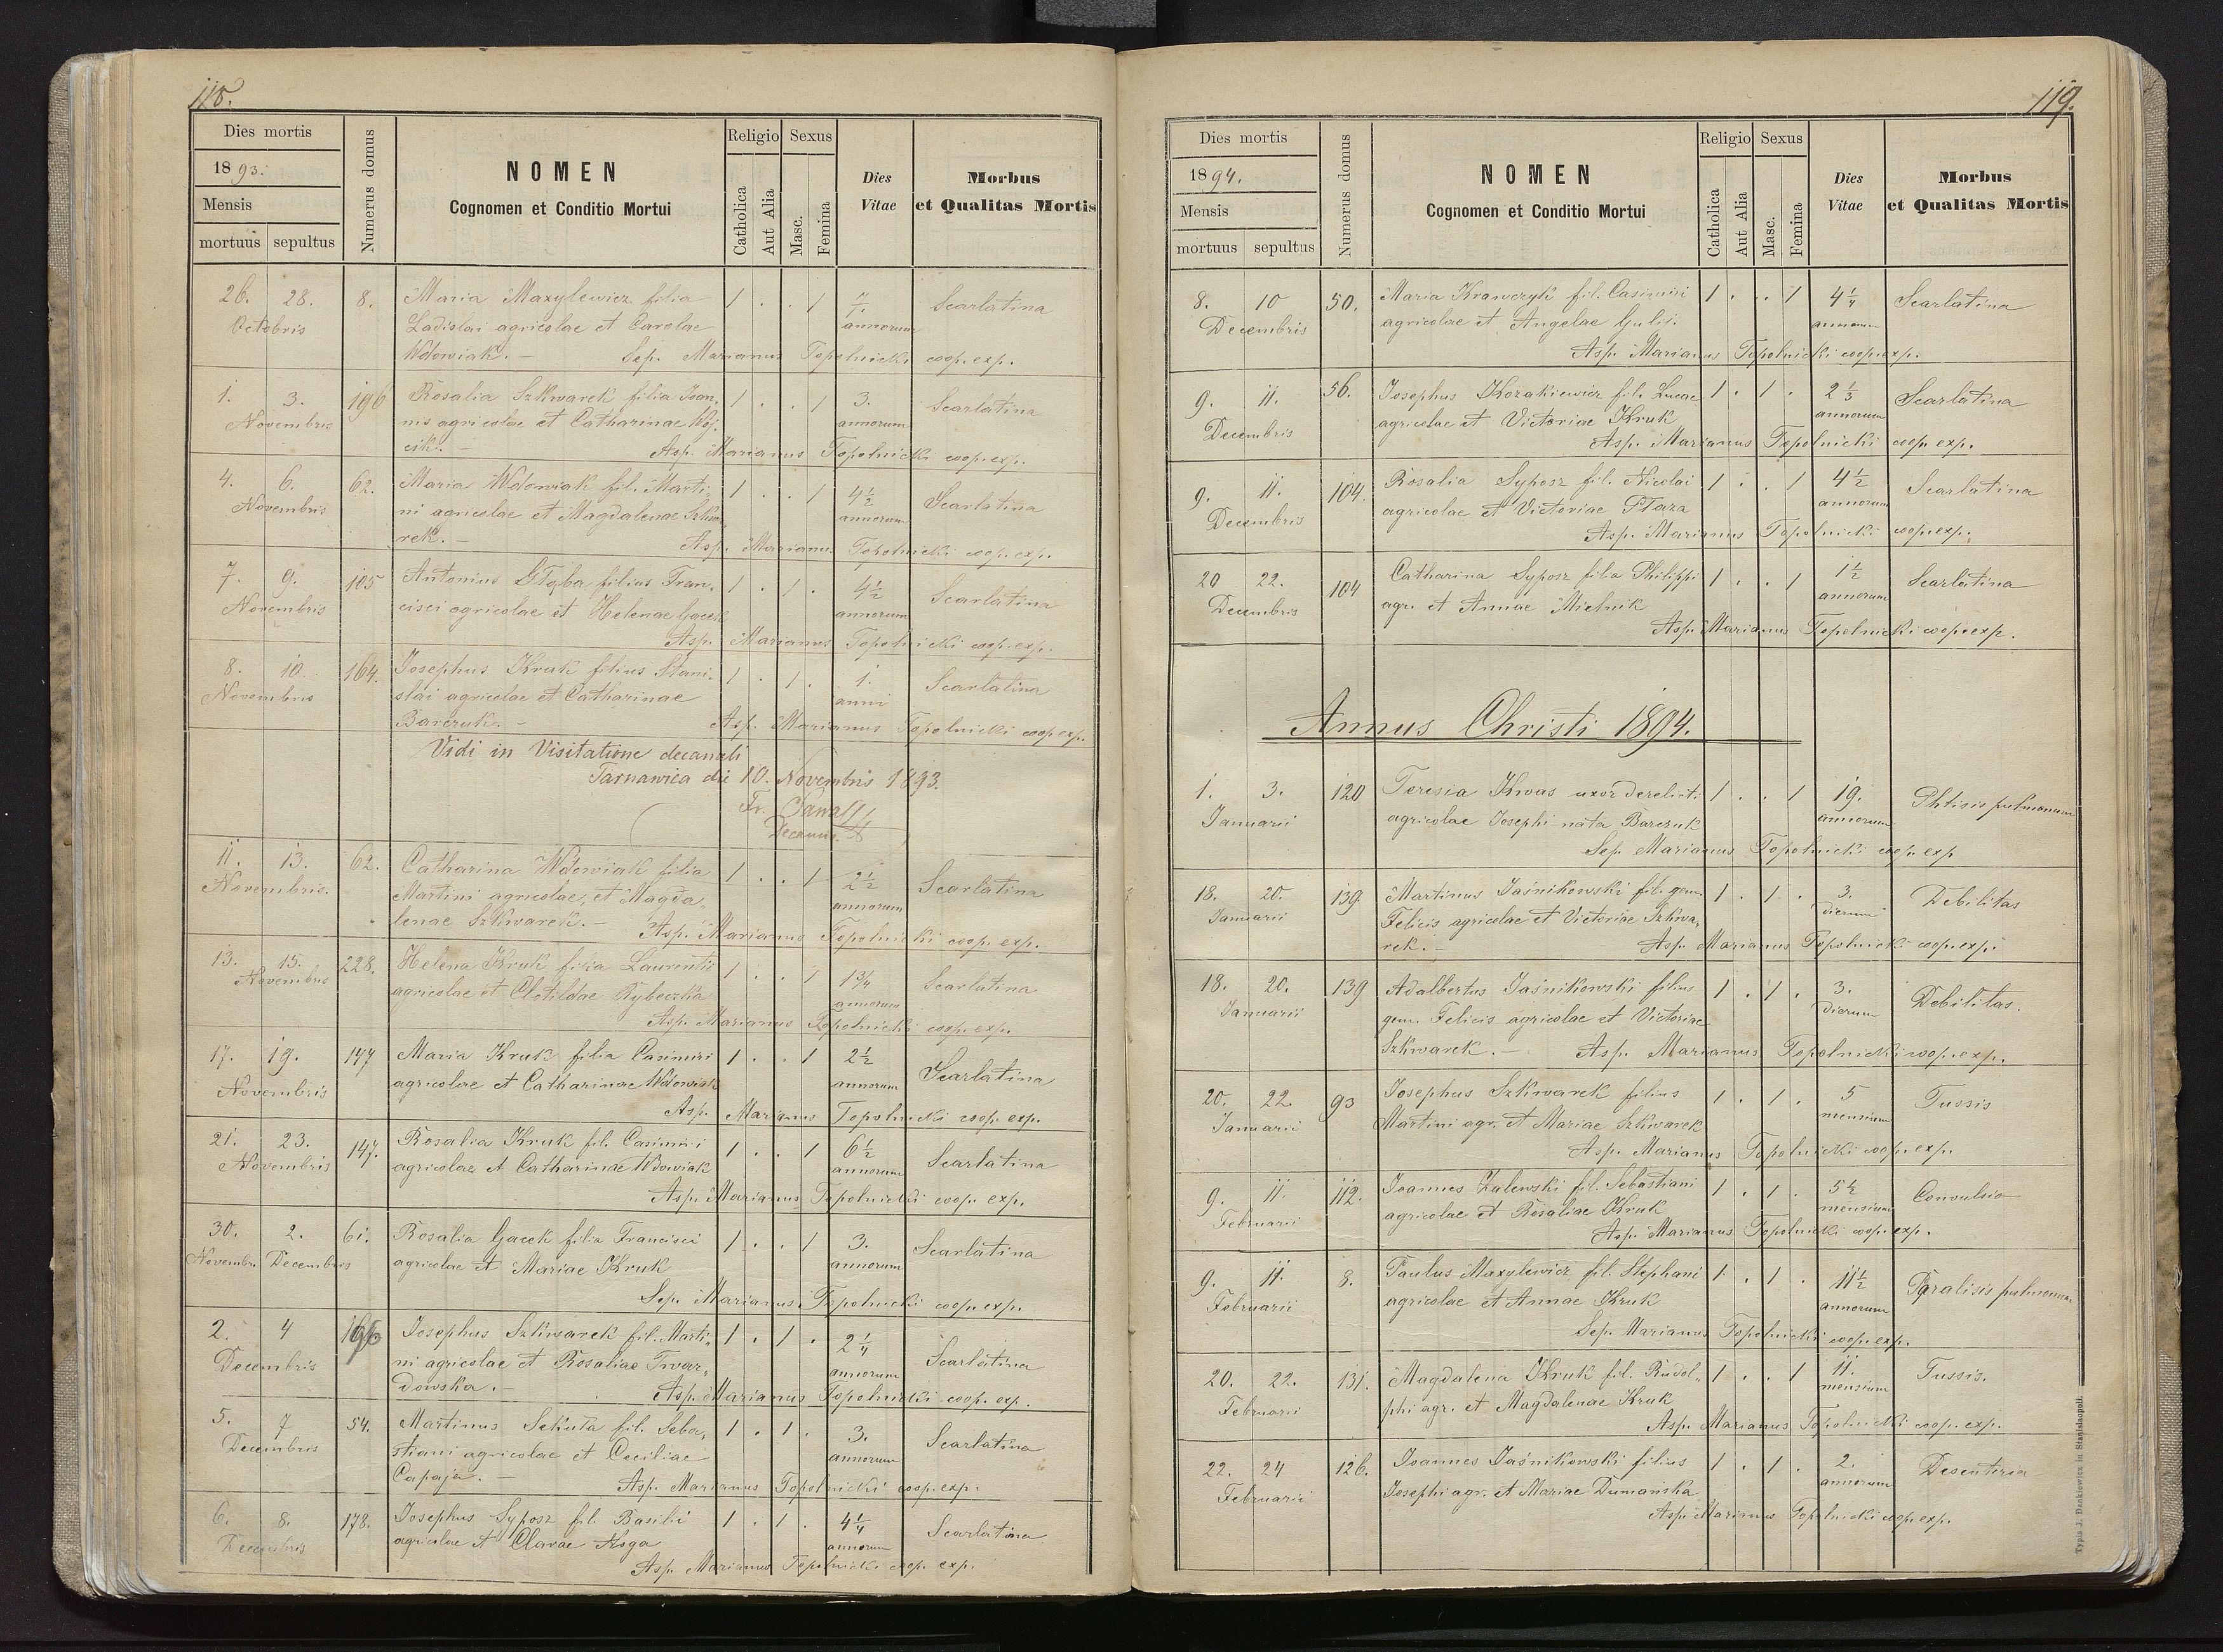 118.
Dies mortis
1893.
Mensis
mortuus sepultus
Numerus domus
NOMEN
Cognomen et Conditio Mortui
Religio
Catholica
Aut Alia
Sexus
Masc.
Femina
Dies
Vitae
Morbus
et Qualitas Mortis
26. 28. 8. Maria Maxylewicz filia 1 . . 1 Scarlatina
Octobris Ladislai agricolae et Carolae annorum
Wdowiak. – Sep. Marianus Topolnicki coop. exp.
1. 3. 196 Rosalia Szkwarek filia Ioan, 1 . . 1 3. Scarlatina
Novembris nis agricolae et Catharinae Wój, annorum
cik. – Asp. Marianus Topolnicki coop. exp.
4. 6. 62. Maria Wdowiak fil. Marti, 1 . . 1 4½ Scarlatina
Novembris ni agricolae et Magdalenae Szkwa, annorum
rek. – Asp. Marianus Topolnicki coop. exp.
7. 9. 105 Antonius Głąba filius Fran, 1 . 1 . 4½ Scarlatina
Novembris cisci agricolae et Helenae Gacek annorum
Asp. Marianus Topolnicki coop. exp.
8. 10. 164. Josephus Kruk filius Stani, 1 . 1 . 1. Scarlatina
Novembris slai agricolae et Catharinae anni
Barczuk. – Asp. Marianus Topolnicki coop. exp.
Vidi in Visitatione decanali
Tarnawica die 10. Novembris 1893.
Fr.
Decanus
11. 13. 62. Catharina Wdowiak filia 1 . . 1 2½ Scarlatina
Novembris. Martini agricolae, et Magda, annorum
lenae Szkwarek. – Asp. Marianus Topolnicki coop. exp.
13. 15. 228. Helena Kruk filia Laurentii 1 . . 1 1¾ Scarlatina
Novembris agricolae et Clotildae Rybeczka annorum
Asp. Marianus Topolnicki coop. exp.
17. 19. 147 Maria Kruk filia Casimiri 1 . . 1 2½ Scarlatina
Novembris agricolae et Catharinae Wdowiak annorum
Asp. Marianus Topolnicki coop. exp.
21. 23. 147. Rosalia Kruk fil. Casimiri 1 . . 1 6½ Scarlatina
Novembris agricolae et Catharinae Wdowiak annorum
Asp. Marianus Topolnicki coop. exp.
30. 2. 61. Rosalia Gacek filia Francisci 1 . . 1 3. Scarlatina
Novembri Decembris agricolae et Mariae Kruk annorum
Sep. Marianus Topolnicki coop. exp.
2. 4 196 Josephus Szkwarek fil. Marti, 1 . 1 . 2¼ Scarlatina
Decembris ni agricolae et Rosaliae Twar, annorum
dowska. – Asp. Marianus Topolnicki coop. exp.
5. 7 54. Martinus Sekuła fil. Seba, 1 . 1 . 3. Scarlatina
Decembris stiani agricolae et Ceciliae annorum
Capaja. – Asp. Marianus Topolnicki coop. exp.
6. 8. 178. Josephus Syposz fil. Basilii 1 . 1 . 4¼ Scarlatina
Decembris agricolae et Clarae annorum
Asp. Marianus Topolnicki coop. exp.
119.
Dies mortis
1894.
Mensis
mortuus sepultus
Numerus domus
NOMEN
Cognomen et Conditio Mortui
Religio
Catholica
Aut Alia
Sexus
Masc.
Femina
Dies
Vitae
Morbus
et Qualitas Mortis
8. 10 50. Maria Krawczyk fil. Casimiri 1 . . 1 4¼ Scarlatina
Decembris agricolae et Angelae Gulij. annorum
Asp. Marianus Topolnicki coop. exp.
9. 11. 56. Josephus Kozakiewicz fil. Lucae 1 . 1 . 2⅓ Scarlatina
Decembris agricolae et Victoriae Kruk annorum
Asp. Marianus Topolnicki coop. exp.
9. 11. 104. Rosalia Syposz fil. Nicolai 1 . . 1 4½ Scarlatina
Decembris agricolae et Victoriae Flaza annorum
Asp. Marianus Topolnicki coop. exp.
20 22. 104 Catharina Syposz filia Philippi 1 . . 1 1½ Scarlatina
Decembris agr. et Annae Mielnik annorum
Asp. Marianus Topolnicki coop. exp.
Annus Christi 1894.
1. 3. 120 Teresia Kwas uxor derelicti 1 . . 1 19. Phtisis pulmonum
Januarii agricolae Josephi nata Barczuk annorum
Sep. Marianus Topolnicki coop. exp
18. 20. 139. Martinus Jaśnikowski fil. gem. 1 . 1 . 3. Debilitas
Januarii Felicis agricolae et Victoriae Szkwa, dierum
rek. – Asp. Marianus Topolnicki coop. exp.
18. 20. 139 Adalbertus Jaśnikowski filius 1 . 1 . 3. Debilitas.
Januarii gem. Felicis agricolae et Victoriae dierum
Szkwarek. – Asp. Marianus Topolnicki coop. exp.
20. 22. 93 Josephus Szkwarek filius 1 . 1 . 5 Tussis
Januarii Martini agr. et Mariae Szkwarek mensium
Asp. Marianus Topolnicki coop. exp.
9. 11. 112. Joannes Zalewski fil. Sebastiani 1 . 1 . 5½ Convulsio
Februarii agricolae et Rosaliae Kruk mensium
Asp. Marianus Topolnicki coop. exp.
9. 11. 8. Paulus Maxylewicz fil. Stephani 1. . 1 . 11½ Paralisis pulmonum
Februarii agricolae et Annae Kruk annorum
Sep. Marianus Topolnicki coop. exp.
20. 22. 131. Magdalena Kruk fil. Rudol, 1 . . 1 11. Tussis.
Februarii phi agr. et Magdalenae Kruk mensium
Asp. Marianus Topolnicki coop. exp.
22. 24 126. Joannes Jaśnikowski filius 1 . 1 . 2. Desenteria
Februarii Josephi agr. et Mariae Dumańska annorum
Asp. Marianus Topolnicki coop. exp.
Typis J. Dankiewicz in Stanislaopoli.